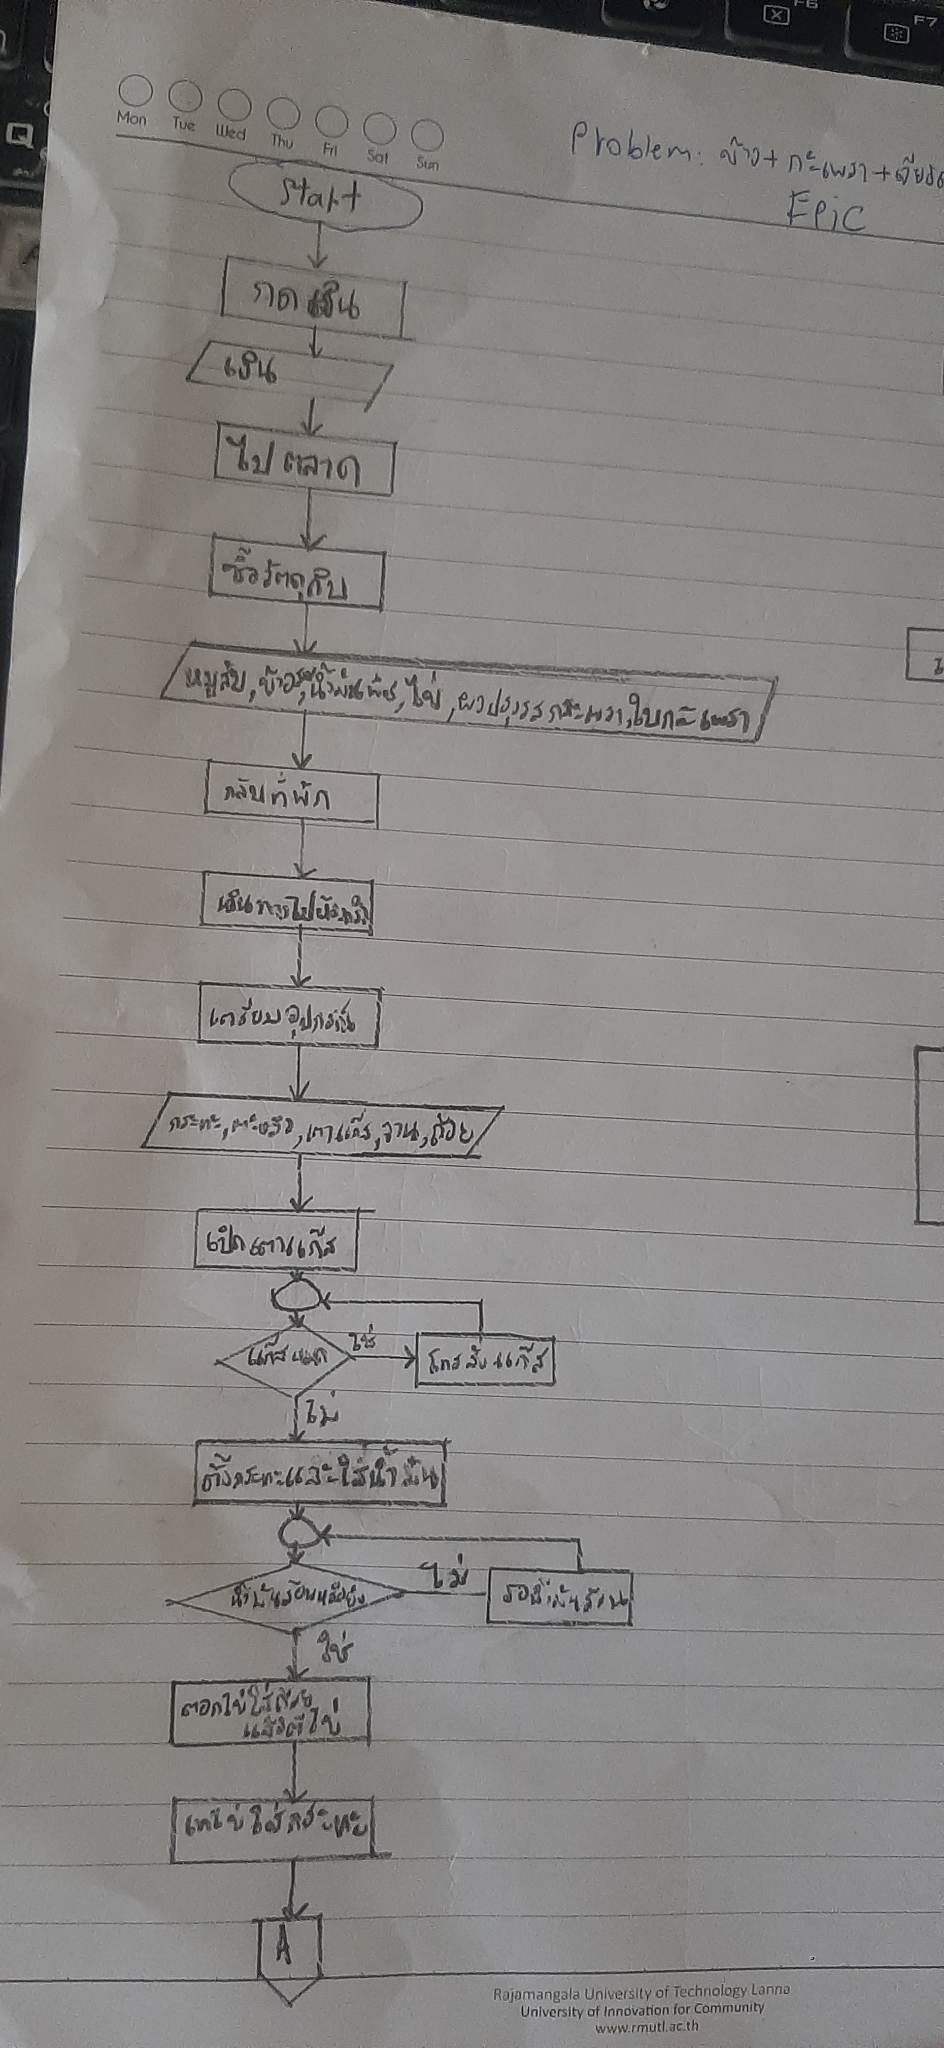 Mon Tue Wed Thu Fri Sat Sun
Problem: ข้าว+กะเพรา+เจียว
Epic
Start
กดเงิน
เงิน
ไปตลาด
ซื้อวัตถุดิบ
หมูสับ, ข้าว, น้ำมันพืช, ไข่, ผงปรุงรสกะเพรา, ใบกะเพรา
กลับที่พัก
เดินทางไปห้องครัว
เตรียมอุปกรณ์
กระทะ, ตะหลิว, เตาแก๊ส, จาน, ถ้วย
เปิดเตาแก๊ส
แก๊สหมด ใช่ โทรสั่งแก๊ส
ไม่
ตั้งกระทะและใส่น้ำมัน
น้ำมันร้อนหรือยัง ไม่ รอน้ำมันร้อน
ใช่
ตอกไข่ใส่ถ้วย
แล้วตีไข่
เทไข่ใส่กระทะ
A
Rajamangala University of Technology Lanna
University of Innovation for Community
www.rmutl.ac.th
F6
F7
Q